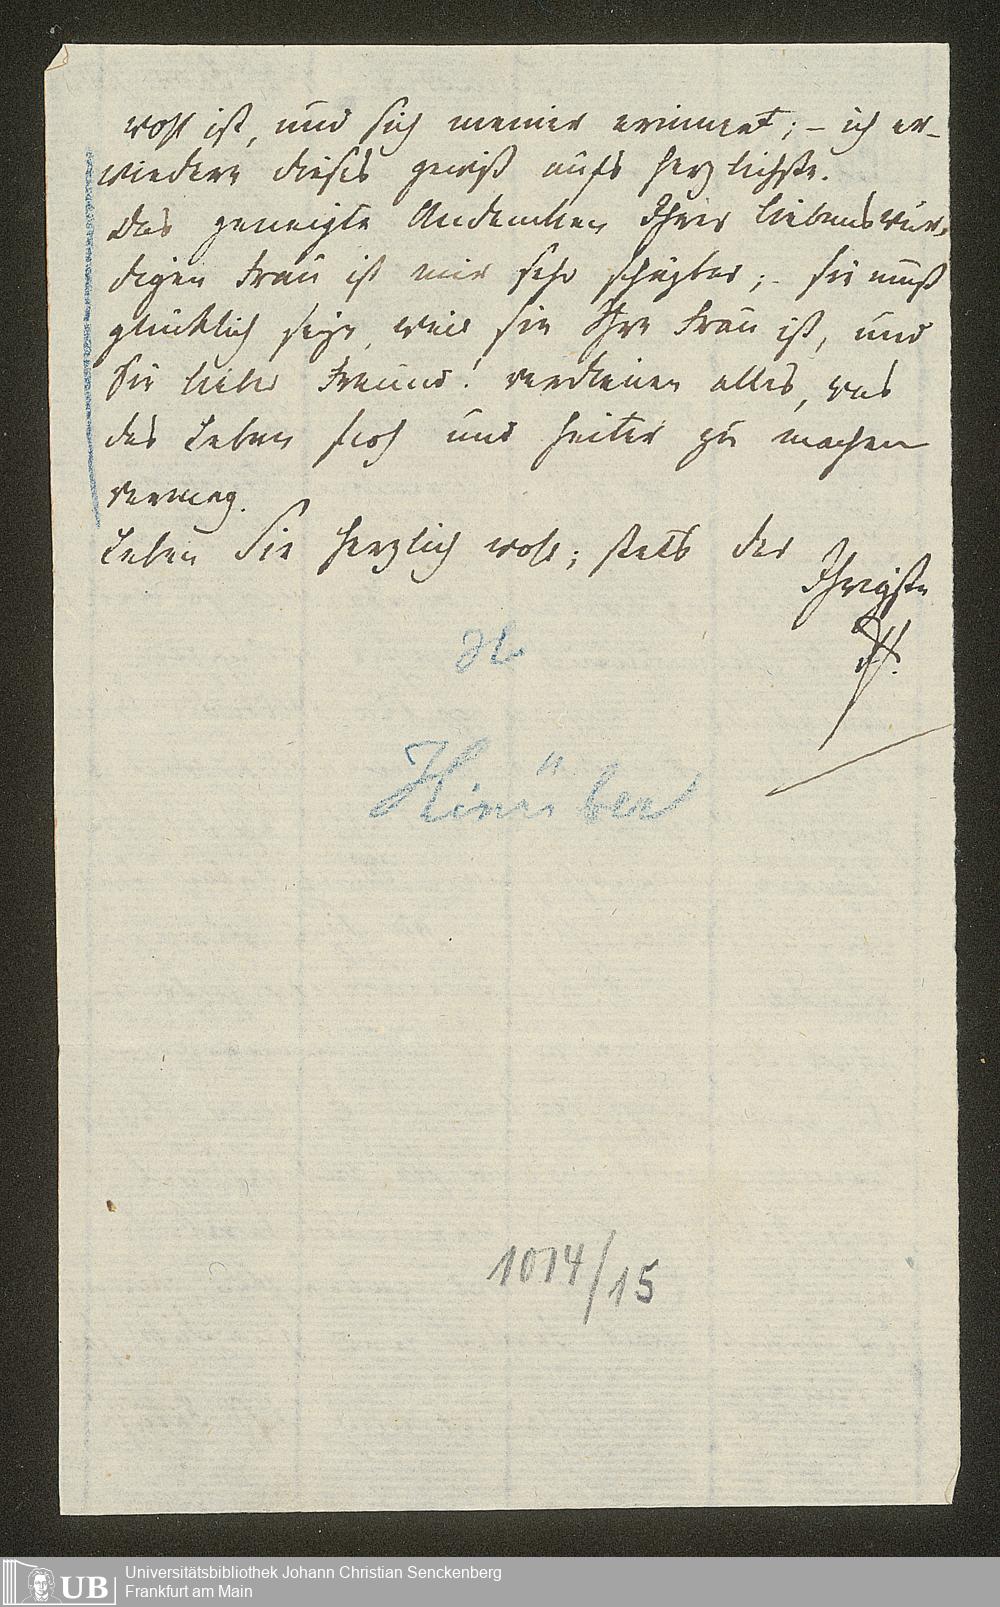 wohl ist, und sich meiner erinnert; – ich er-
wiedere dieses gewiß aufs herzlichste.
Das geneigte Andencken Ihrer liebenswür-
digen Frau ist mir sehr schäzbar; – sie muß
glücklich seyn, weil sie Ihre Frau ist, und
Sie lieber Freund! verdienen alles, was
das Leben froh und heiter zu machen
vermag.
Leben Sie herzlich wohl; stets der
Ihrigste
H.
Hinüber
1014/15
UB
Universitätsbibliothek Johann Christian Senckenberg
Frankfurt am Main